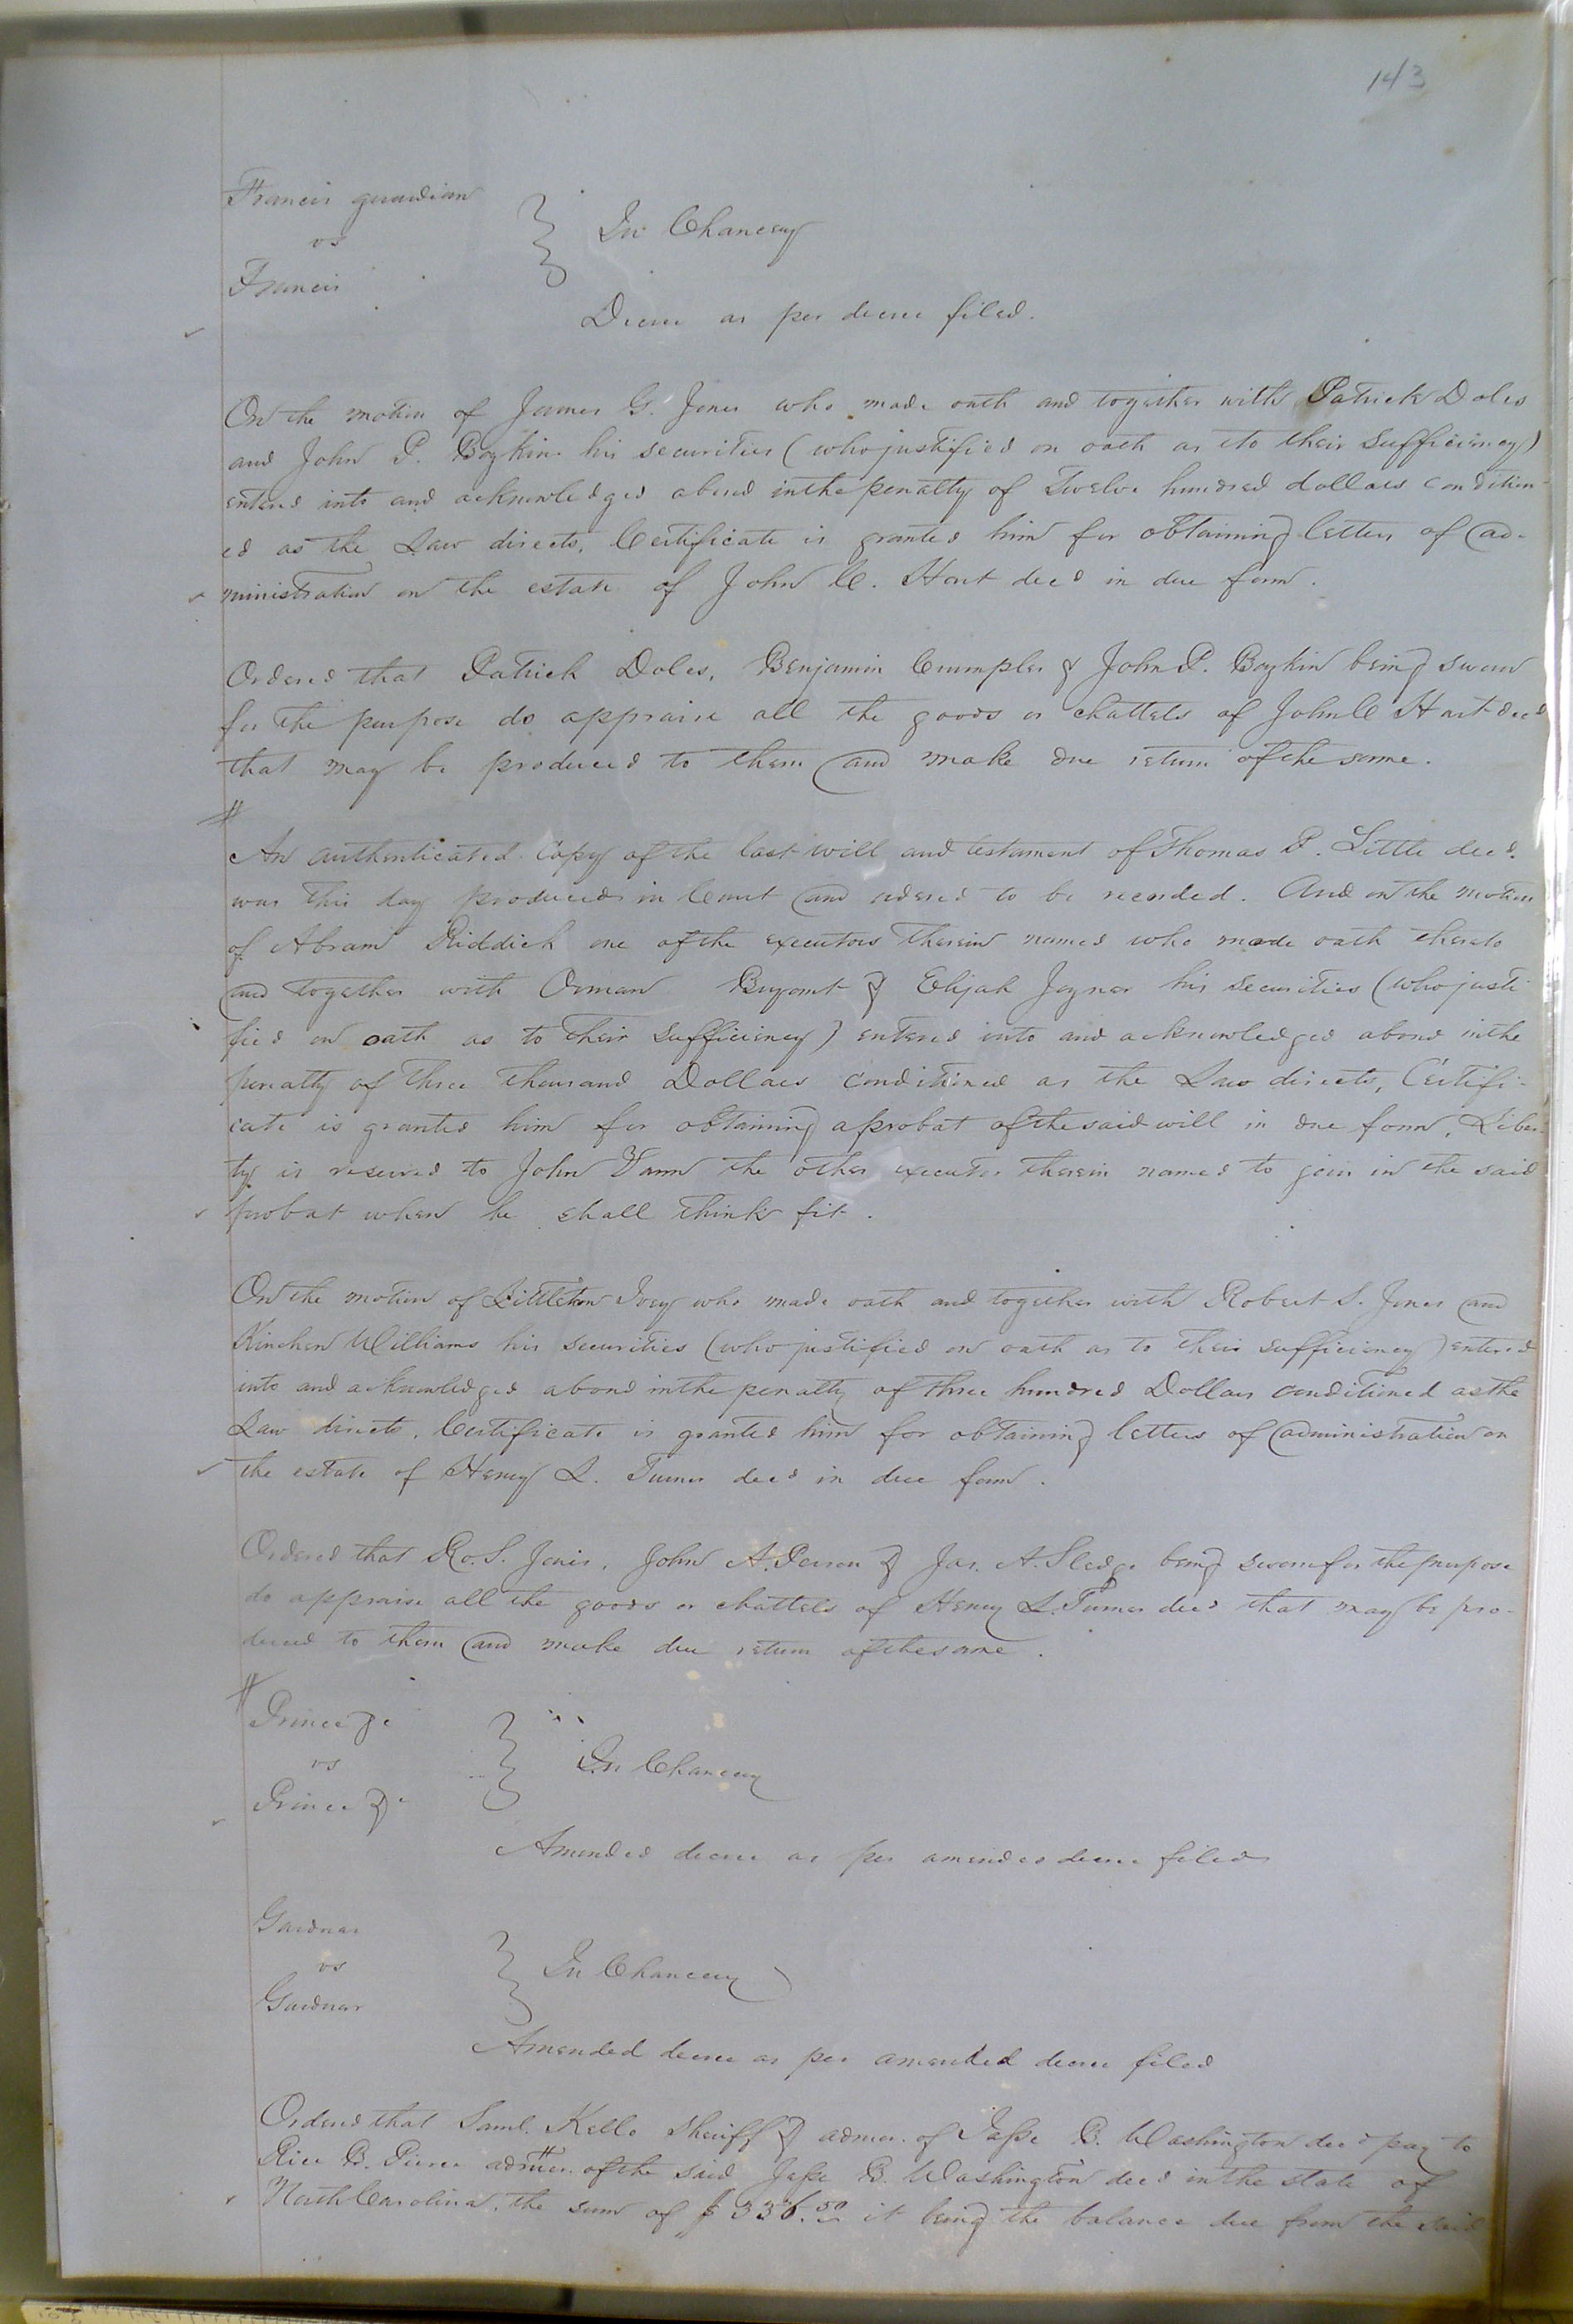 143
Francis guardian
vs
Francis
In Chancery
Decree as per decree filed.
On the motion of James G. Jones who made oath and together with Patrick Doles
and John P. Boykin his securities (who justified on oath as to their sufficiency)
entered into and acknowledged a bond in the penalty of Twelve hundred dollars condition
ed as the Law directs, Certificate is granted him for obtaining letters of ad-
ministration on the estate of John C. Hart decd in due form.
Ordered that Patrick Doles, Benjamin Crumpler & John P. Boykin being sworn
for the purpose do appraise all the goods or chattels of John C Hart decd
that may be produced to them and make due return of the same.
#
An authenticated Copy of the last will and testament of Thomas P. Little decd.
was this day produced in Court and ordered to be recorded. And on the motion
of Abram Riddick one of the executors therein named who made oath thereto
and together with Orman & Elijah Joyner his securities (who justi
fied on oath as to their sufficiency) entered into and acknowledged a bond in the
penalty of three thousand Dollars conditioned as the Law directs, Certifi-
cate is granted him for obtaining a probat of the said will in due form, Liber-
ty is reserved to John Vann the other executor therein named to join in the said
probat when he shall think fit.
On the motion of Littleton Ivey who made oath and together with Robert S. Jones and
Kinchen Williams his securities (who justified on oath as to their sufficiency) entered
into and acknowledged a bond in the penalty of three hundred Dollars conditioned as the
Law directs, Certificate is granted him for obtaining letters of administration on
the estate of Henry L. Turner decd in due form.
Ordered that Ro. S. Jones, John A. Person & Jas. A. Sledge being sworn for the purpose
do appraise all the goods or chattels of Henry L. Turner decd that may be pro-
duced to them and make due return of the same.
#
Prince &c
vs
Prince &c
In Chancery
Amended decree as per amended decree filed
Gardner
vs
Gardner
In Chancery
Amended decree as per amended decree filed
Ordered that Saml. Kello sheriff & admor. of Jesse B. Washington decd pay to
Rice B. Pierce admor. of the said Jesse B. Washington decd in the state of
North Carolina, the sum of $ 336.50 it being the balance due from the said